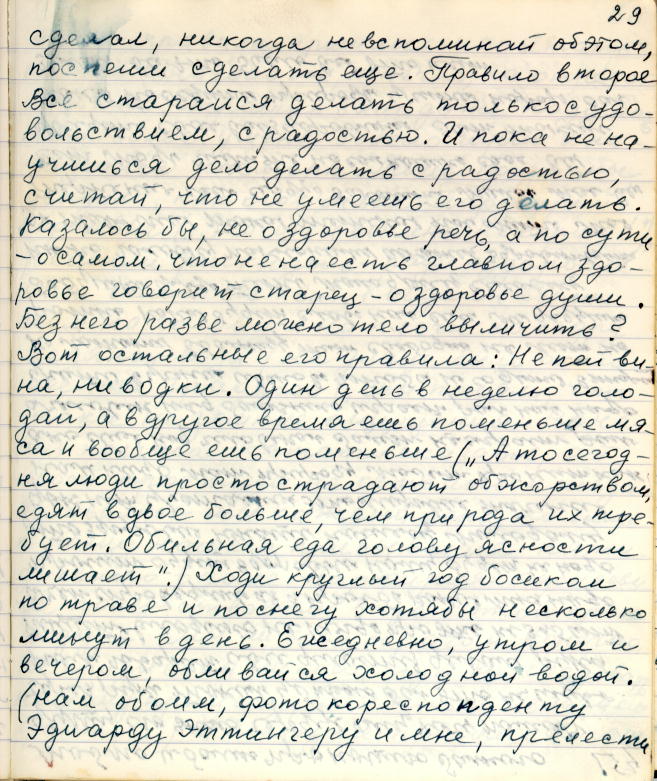 29
сделал, никогда не вспоминай об этом,
поспеши сделать еще. Правило второе
Все старайся делать только с удо-
вольствием, с радостью. И пока не на-
учишься дело делать с радостью,
считай, что не умеешь его делать.
Казалось бы, не о здоровье речь, а по сути
- о самом что не на есть главном здо-
ровье говорит старец - о здоровье души.
Без него разве можно тело выличить?
Вот остальные его правила: Не пей ви-
на, ни водки. Один день в неделю голо-
дай, а в другое время ешь поменьше мя-
са и вообще ешь поменьше („А то сегод-
ня люди просто страдают обжорством,
едят вдвое больше, чем природа их тре-
бует. Обильная еда голову ясности
лишает".) Ходи круглый год босиком
по траве и по снегу хотябы несколько
минут в день. Ежедневно, утром и
вечером, обливайся холодной водой.
(нам обоим, фотокореспонденту
Эдиарду Эттингеру и мне, прелести